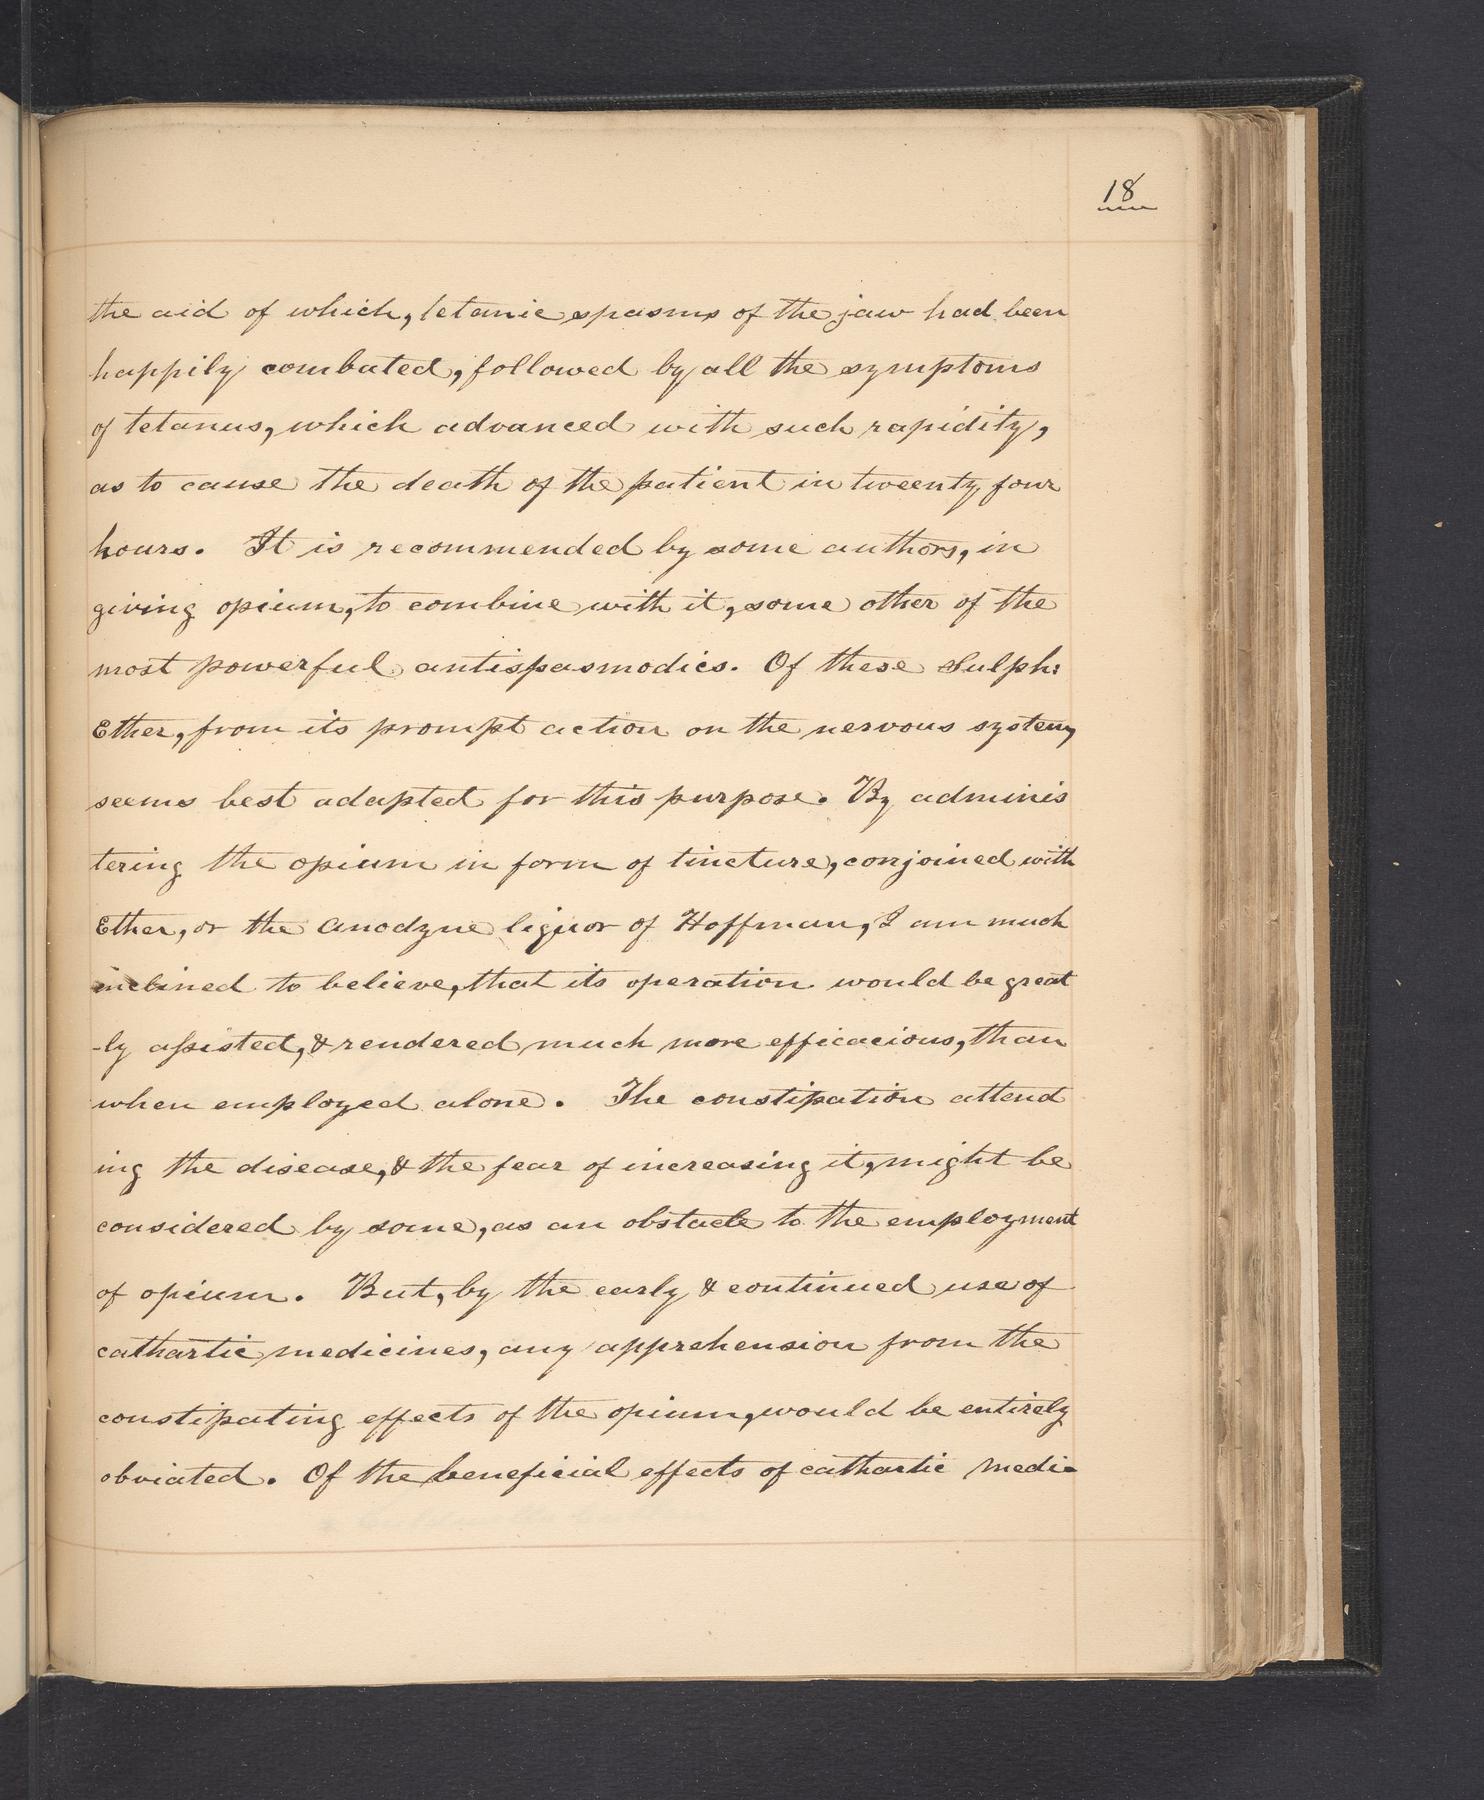 18
the aid of which, tetanic spasms of the jaw had been
happily combated, followed by all the symptoms
of tetanus, which advanced with such rapidity,
as to cause the death of the patient in tweenty four
hours. It is recommended by some authors, in
giving opium, to combine with it, some other of the
most powerful antispasmodics. Of these Sulph:
Ether, from its prompt action on the nervous system,
seems best adapted for this purpose. By adminis
tering the opium in form of tincture, conjoined with
Ether, or the Anodyne liquor of Hoffman, I am much
inclined to believe, that its operation would be great
-ly assisted, & rendered much more efficacious, than
when employed alone. The constipation attend
ing the disease, & the fear of increasing it, might be
considered by some, as an obstacle to the employment
of opium. But, by the early & continued use of
cathartic medicines, any apprehension from the
constipating effects of the opium, would be entirely
obviated. Of the beneficial effects of cathartic medi-